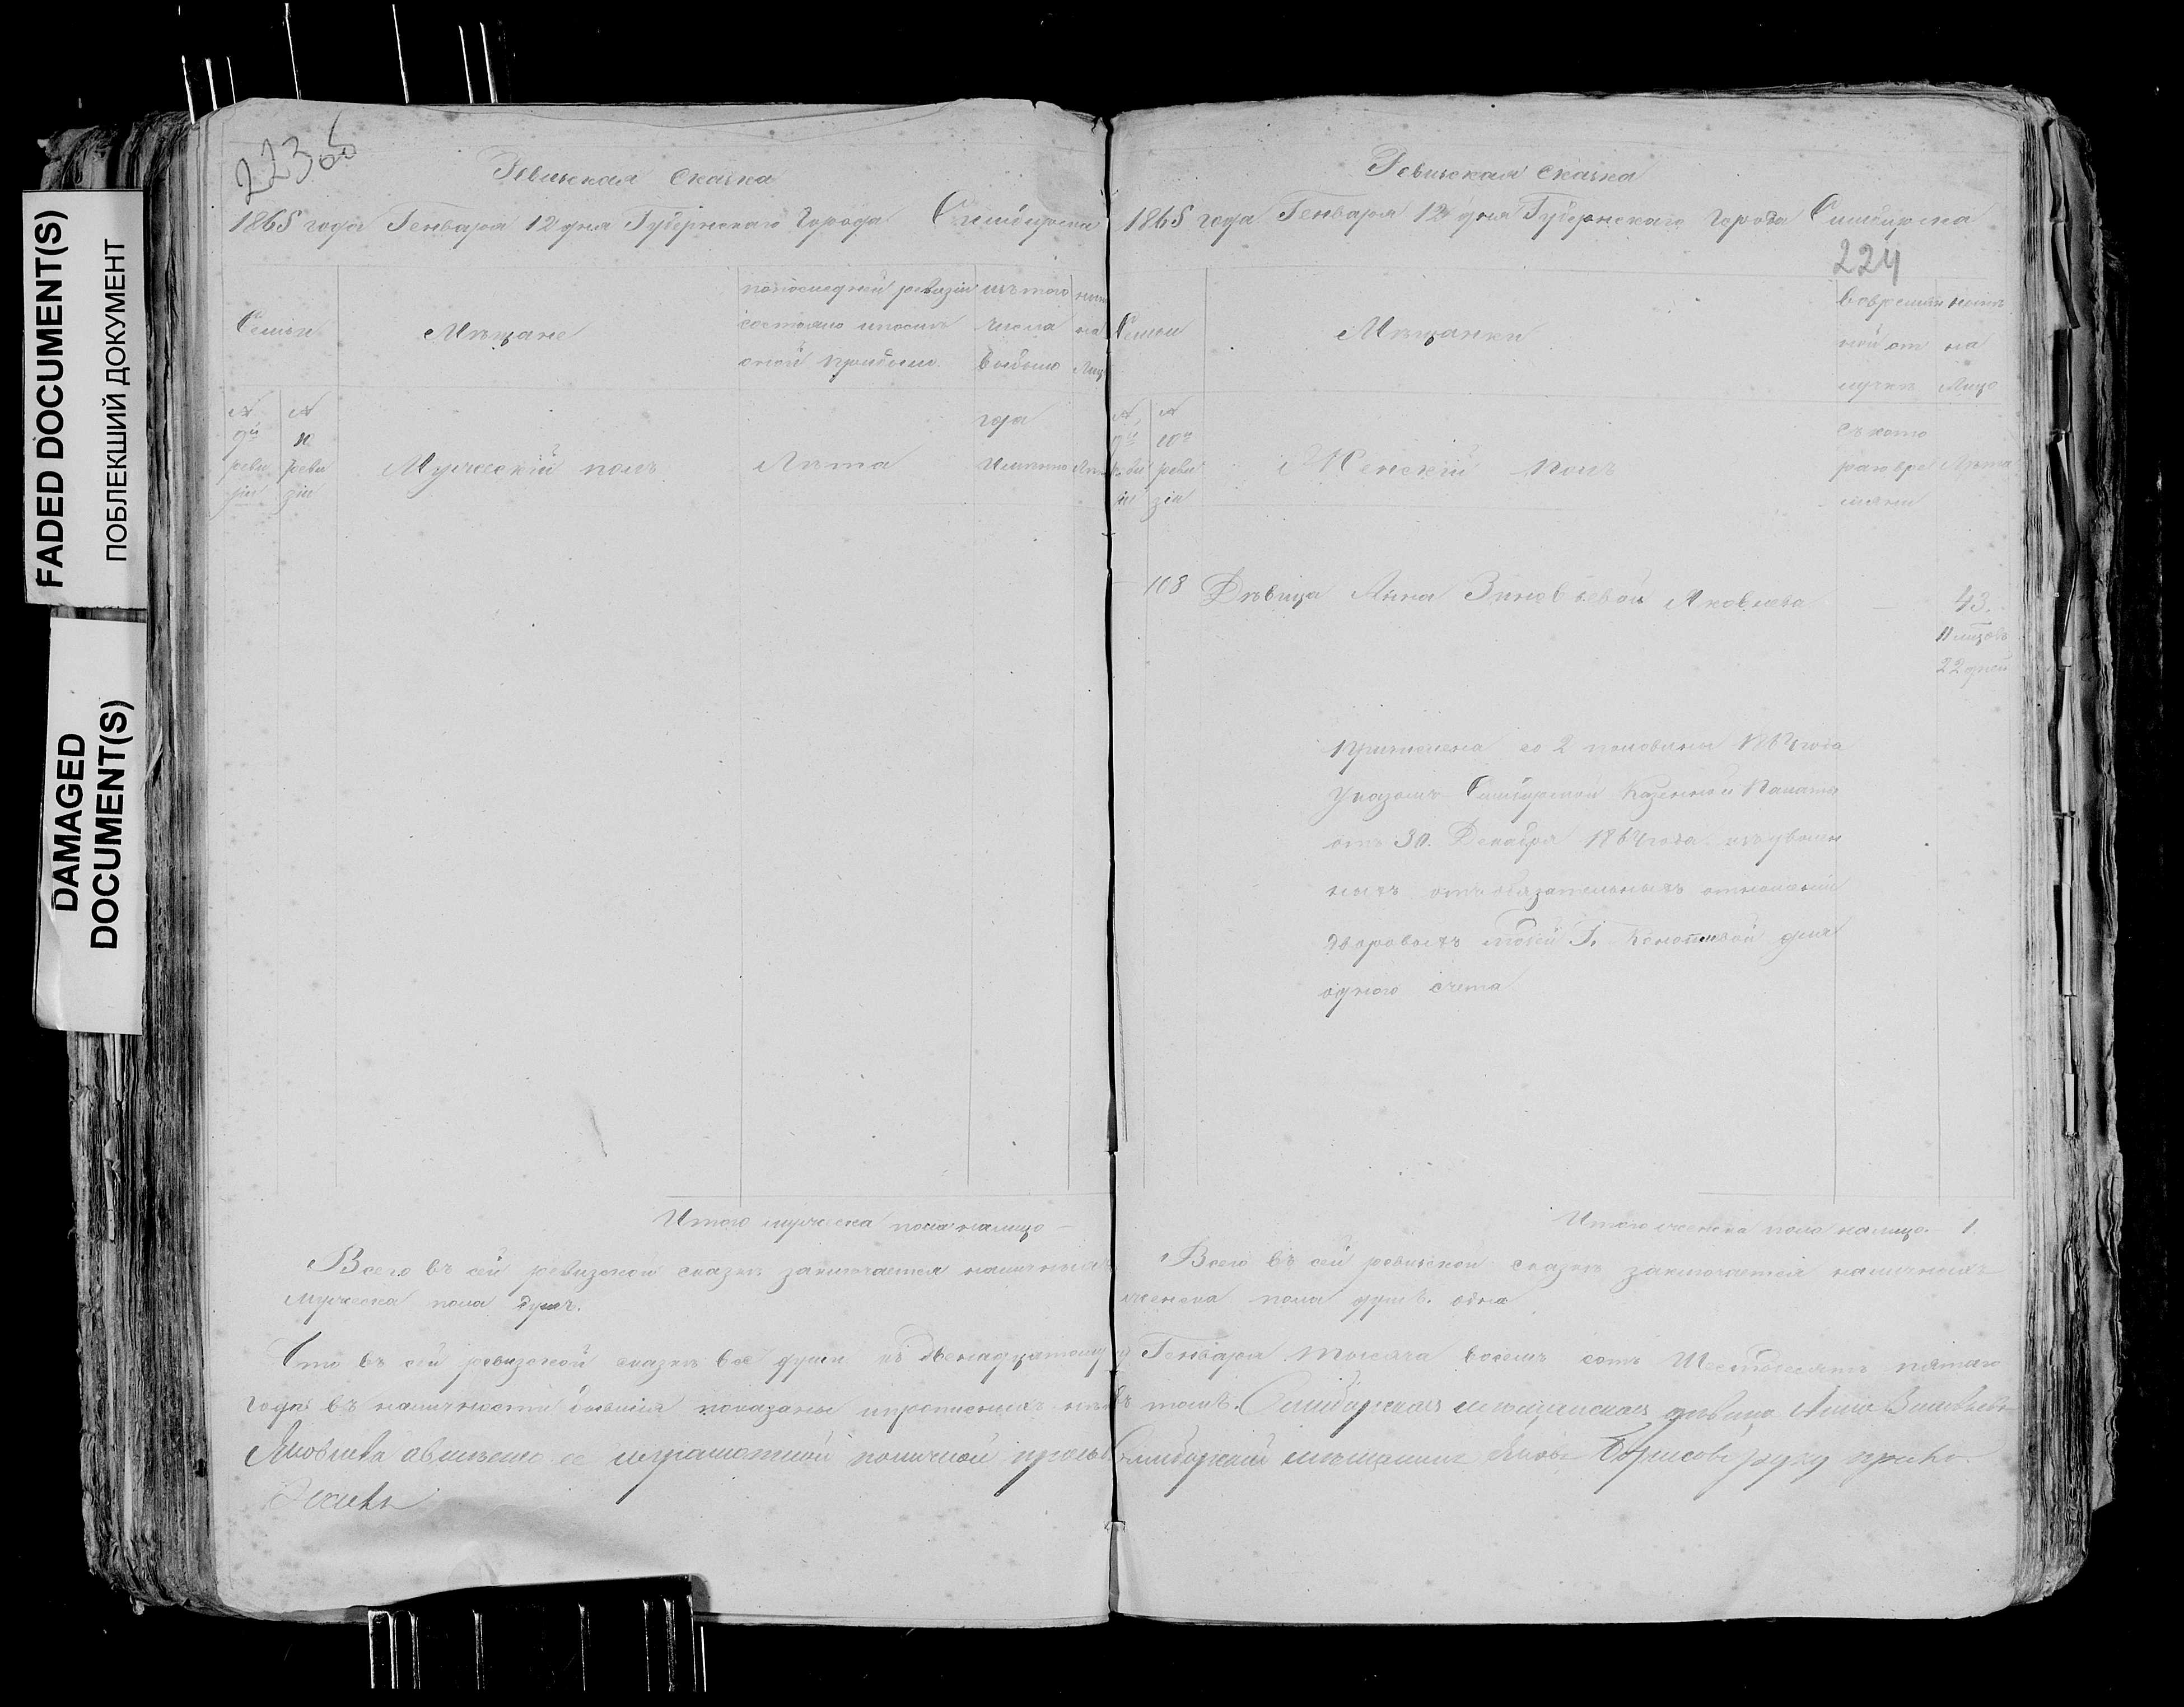 FADED DOCUMENT(S)
ПОБЛЕКШИЙ ДОКУМЕНТ
DAMAGED
DOCUMENT(S)
223 об
Ревизская сказка
1865 года Генваря 12 дня Губернскаго Города Симбирска
Семьи
Мещане
по последней ревизіи
состояло и после
оной прибыло
изъ того
числа
выбыло
на
№ 9й реви зіи
№ 10 реви зіи
Мужескій полъ
Лѣта
года
Итого мужеска пола налицо –
Всего въ сей ревизской сказкѣ заключается наличныхъ
мужеска пола душъ.
Ревизская сказка
1865 года Генваря 12 дня Губернскаго Города Симбирска
224
Семьи
Мѣщанки
во времян
ной от
лучкѣ
нынѣ
на
Лицо
№ 9й
№ 10й реви зіи
Женскій полъ
съ кото
Лѣта
108 Дѣвица Анна Зиновьевой Яковлева – 43.
11 мѣцовъ
22 дней
Причислена со 2 половины 1864 года
Указомъ Симбирской Казенной Палаты
отъ 30. Декабря 1864 года изъ уволен
ныхъ отъ обязательныхъ отношеній
дворовыхъ людей Г. для
одного счета
Итого женска пола налицо. 1.
Всего въ сей ревизской сказкѣ заключается наличныхъ
женска пола душъ. одна
Что въ сей ревизской сказкѣ все души къ двенадцатому Генваря тысяча восемь сотъ Шестьдесятъ пятаго
года въ наличности бывшія показаны и прописныхъ нетъ въ томъ. Симбирская мещанская дѣвица Анна Зиновьева
Яковлева а вместо ее неграмотной по личной прозьбе Симбирский мещанинъ Яковъ Борисовъ руку прило
жилъ